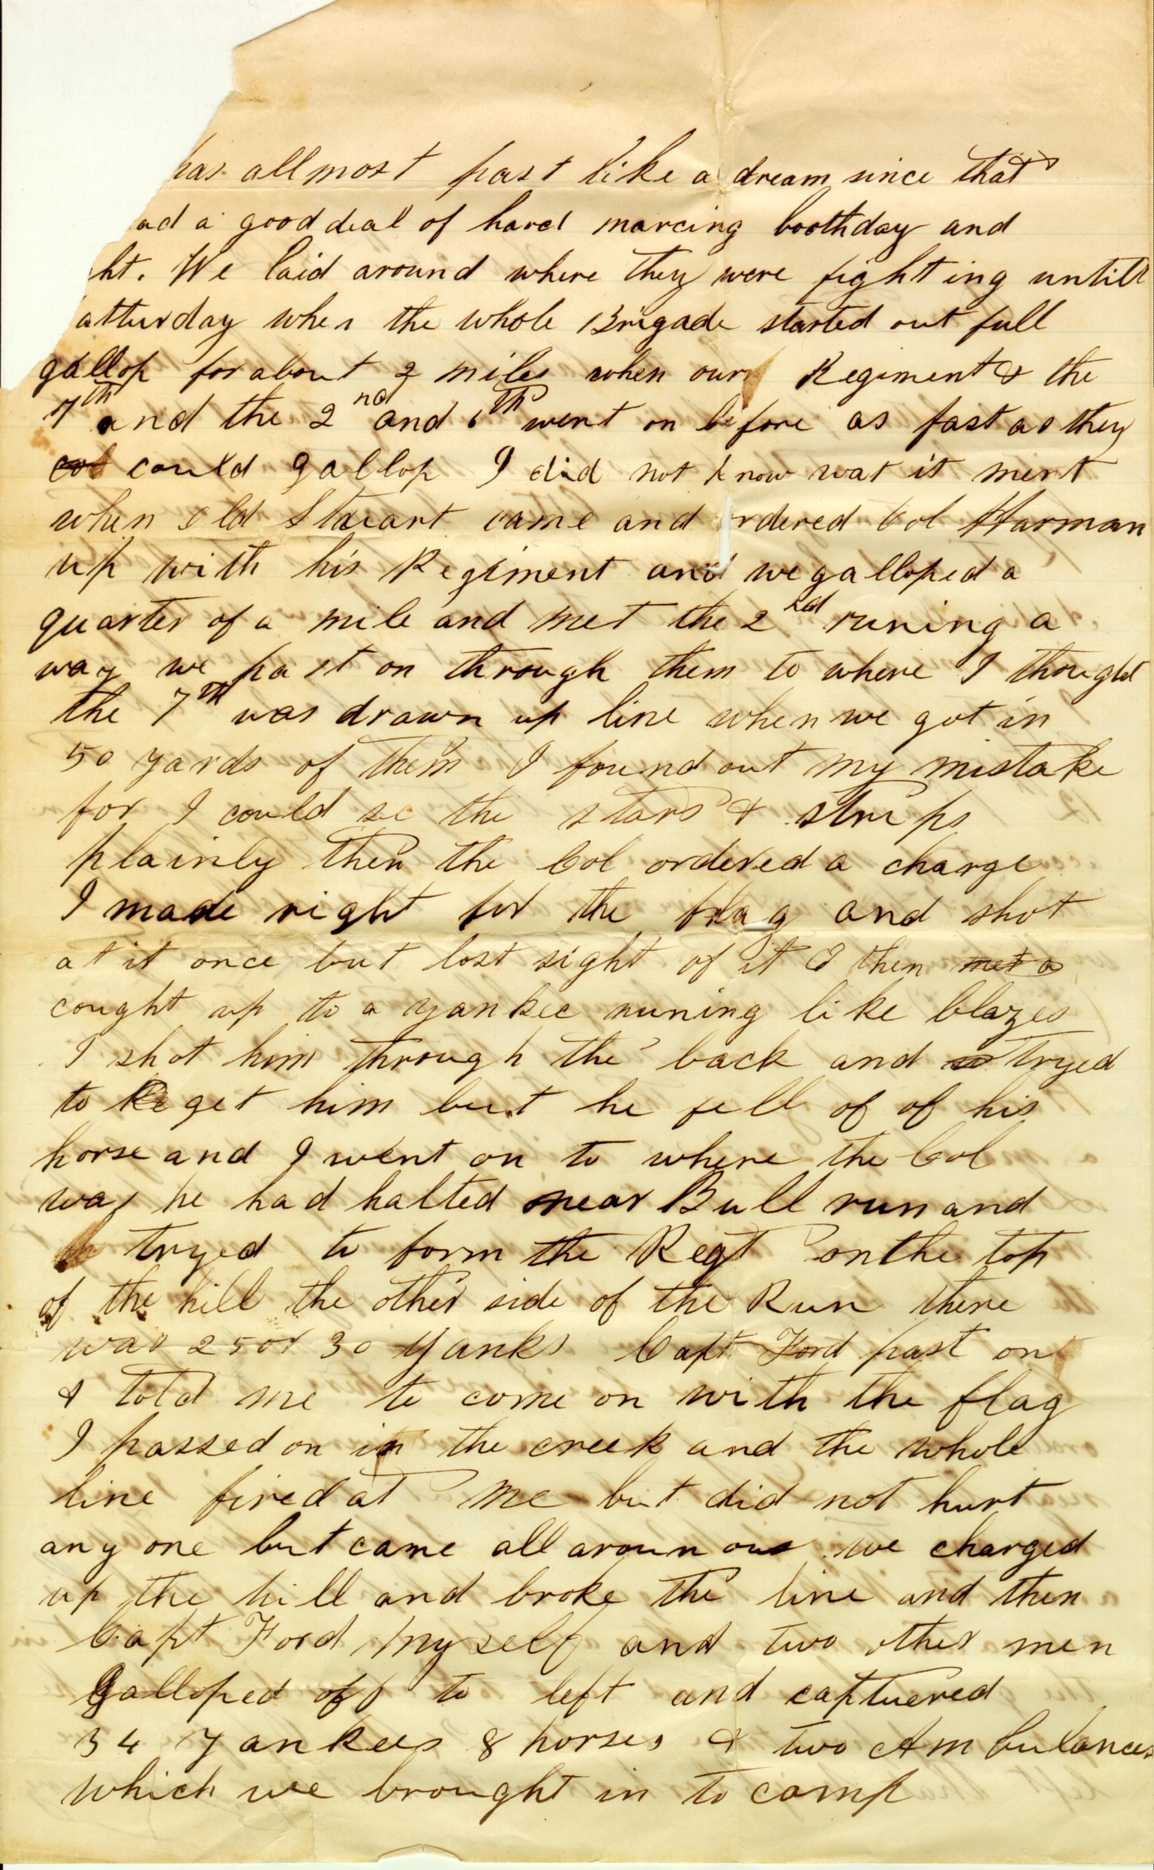 has allmost past like a dream since that
ad a good deal of hard marcing boothday and
ht. We laid around where they were fighting untill
atturday when the whole Brigade started out full
gallop for about 2 miles when our Regiment & the
7th and the 2nd and 6th went on before as fast as they
col could gallop I did not know wat it ment
when old Stuart came and ordered Col Harman
up with his Regiment and we galloped a
quarter of a mile and met the 2nd runing a
way we past on through them to where I thought
the 7th was drawn up line when we got in
50 yards of them I found out my mistake
for I could se the stars & strips
plainly then the Col ordered a charge
I made right for the flag and shot
at it once but lost sight of it I then met a
cought up to a yankee runing like blazes
I shot him through the back and tryed
to get him but he fell of of his
horse and I went on to where the Col
was he had halted near Bull run and
tryed to form the Regt on the top
of the hill the other side of the Run there
was 25 or 30 Yanks Capt Ford past on
& told me to come on with the flag
I passed on in the creek and the whole
line fired at me but did not hurt
any one but came all aroun ous we charged
up the hill and broke the line and then
Capt Ford myself and two other men
Galloped off to left and captuered
34 Yankees 8 horses & two Ambulances
which we brought in to camp